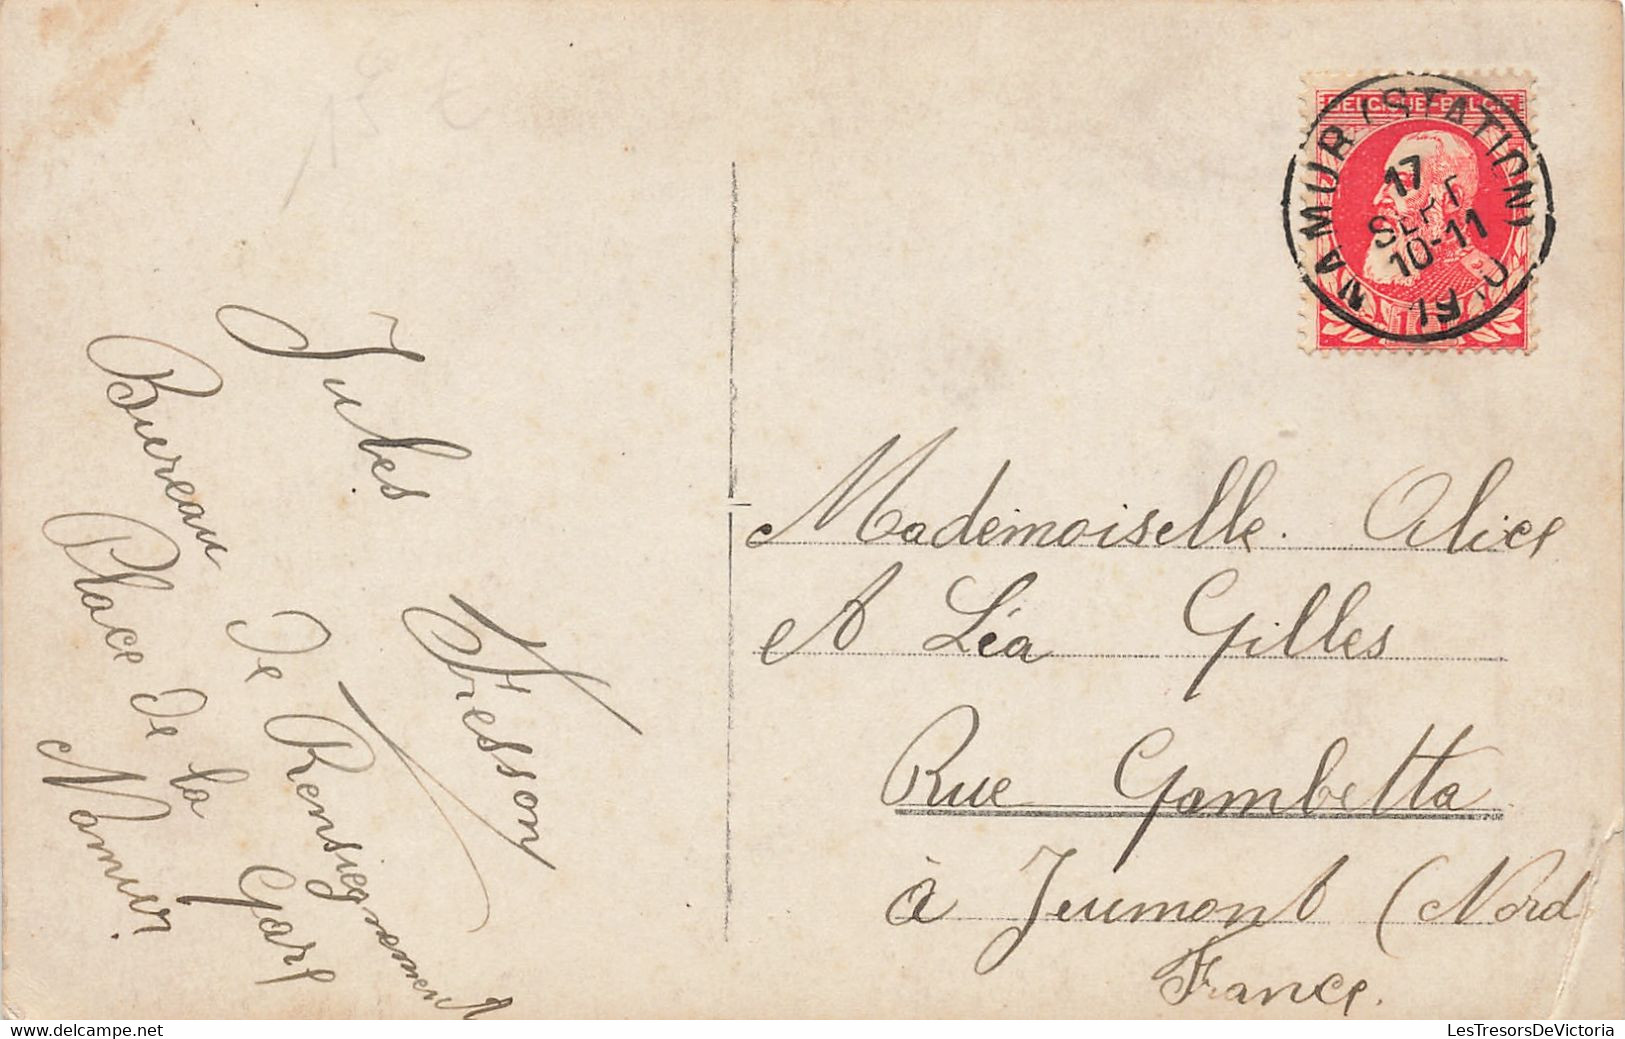 Jules
Fresson
Bureau de Renseignement
Place de la Gare
Namur.
BELGIQUE-BELGIË
NAMUR (STATION)
17
SEPT
10-11
Mademoiselle. Alice
et Léa Gilles
Rue Gambetta
à Jeumont (Nord
France.
LesTresorsDeVictoria
www.delcampe.net